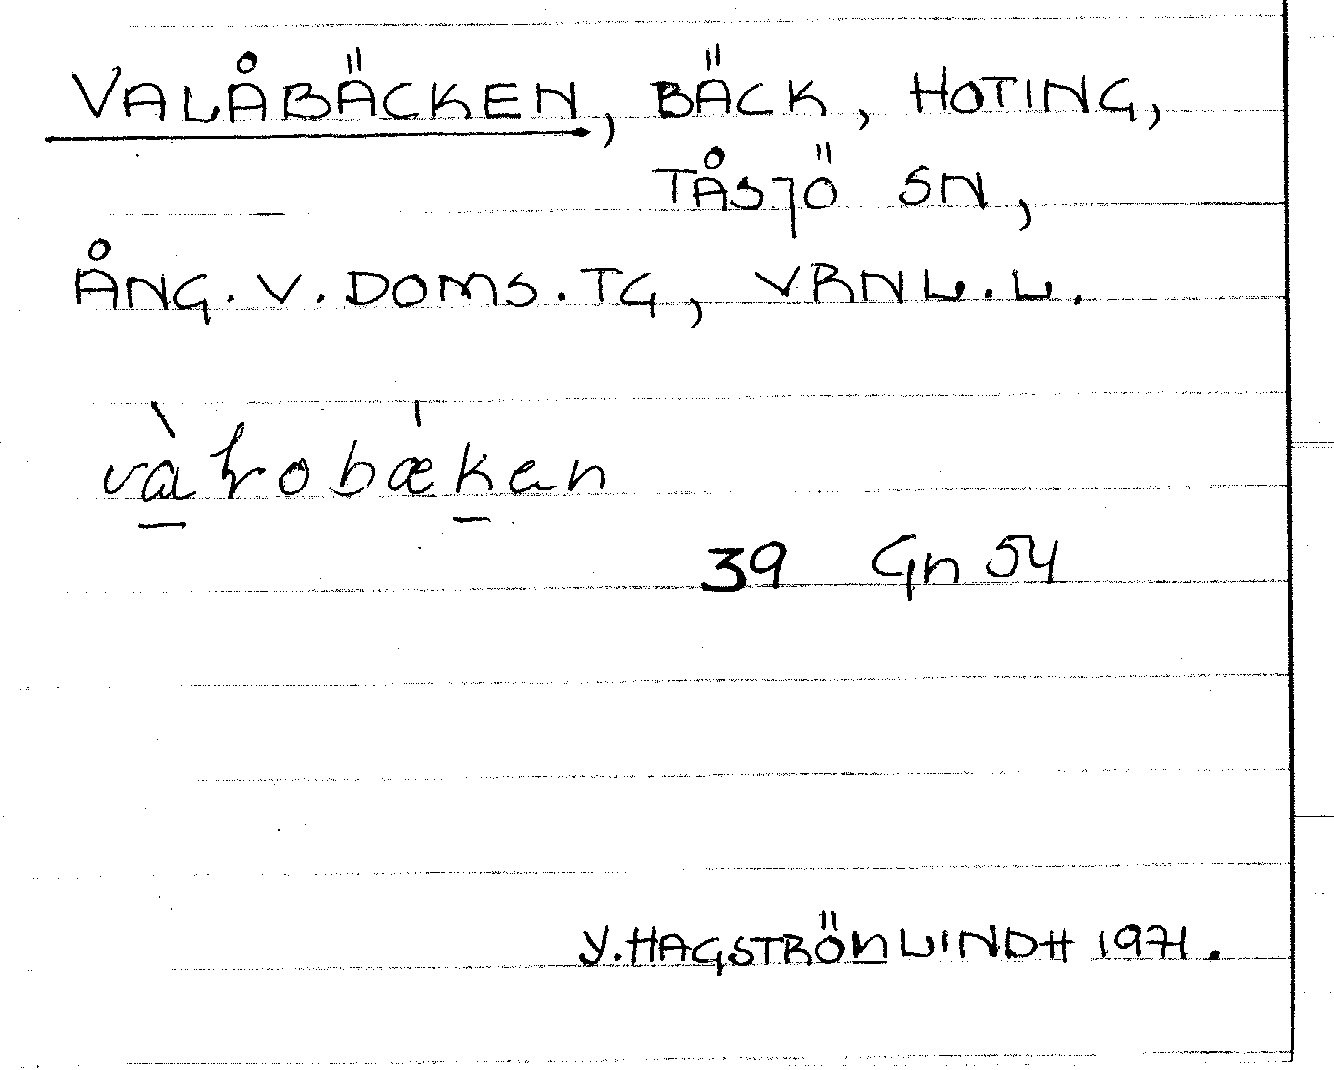 VALÅBÄCKEN, BÄCK, HOTING,
TÅSJÖ SN,
ÅNG. V. DOMS. TG, VRNL. L.
39 Gn 54
Y. HAGSTRÖM LINDH 1971.